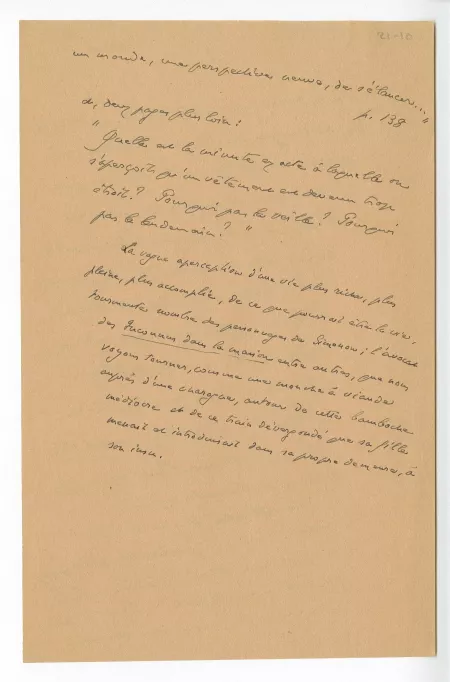 21-10
un monde, une perspective neuve, de s'élancer... "
p. 138
et, deux pages plus loin :
" Quelle est la minute exacte à laquelle on
s'aperçoit qu'un vêtement est devenu trop
étroit ? Pourquoi pas la veille ? Pourquoi
pas le lendemain ? "
La vague aperception d'une vie plus riche, plus
pleine, plus accomplie, de ce que pourrait être la vie,
tourmente nombre des personnages de Simenon ; l'avocat
des Inconnus dans la maison entre autres, que nous
voyons tourner, comme une mouche à viande
auprès d'une charogne, autour de cette bamboche
médiocre et de ce train dévergondé que sa fille
menait et introduisait dans sa propre demeure, à
son insu.